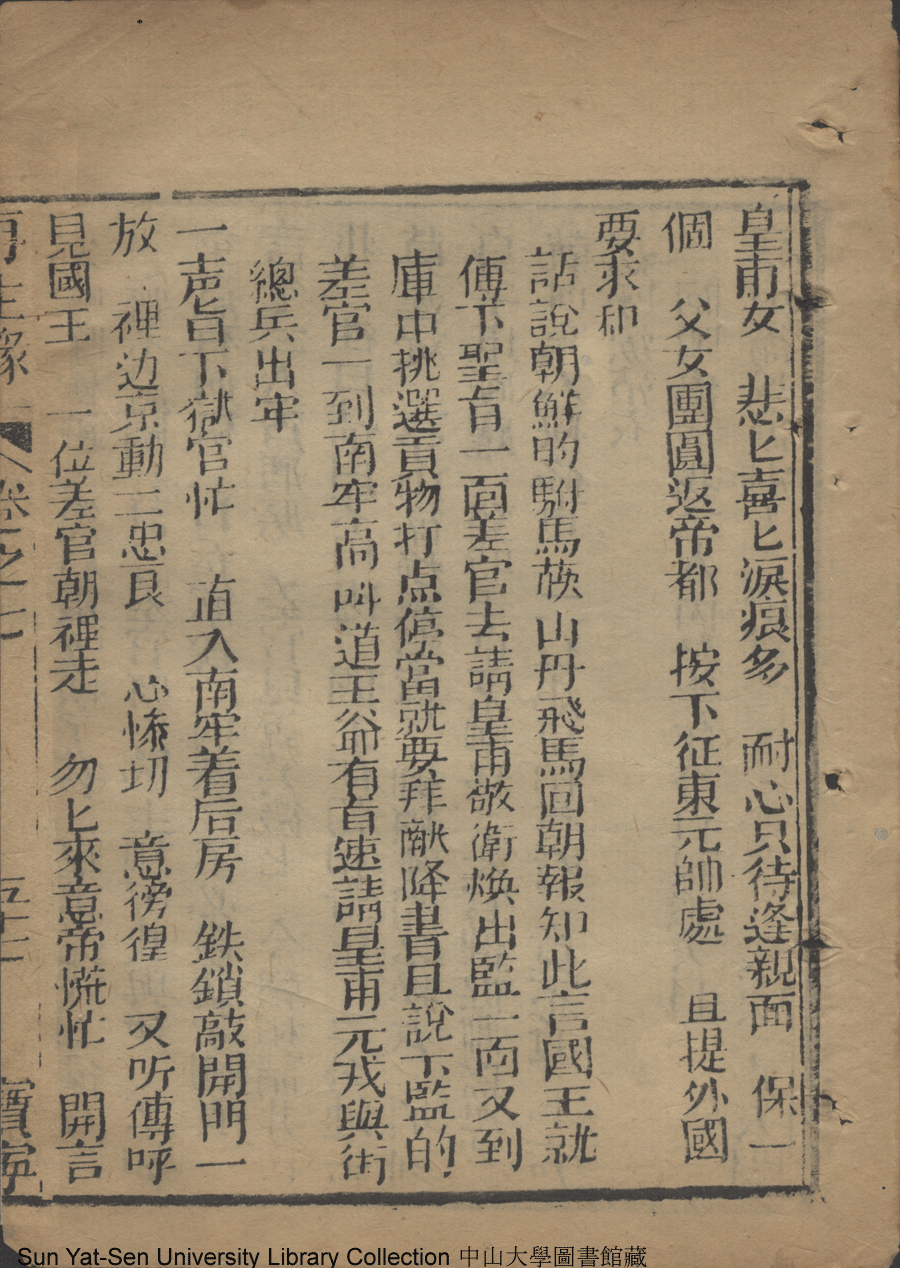 皇甫女　悲匕喜匕淚痕多　耐心只待逢親面　保一
個　父女團圓返帝都　按下征東元帥處　且提外國
要求和
話說朝鮮的駙馬葵山丹飛馬回朝報知此言國王就
傅下聖旨一面差官去請皇甫敬衛煥出監一面又到
庫中挑選貢物打点停當就要拜献降書且說下監的
差官一到南牢高叫道王爺有旨速請皇甫元戎與衛
總兵出牢
一声旨下獄官忙　直入南牢着后房　鉄鎖敲開門一
放　裡边京動二忠良　心慘切　意徬徨　又听傳呼
見國王　一位差官朝裡走　勿匕來意帝慌忙　開言
再生緣　卷之七　五十二　寶寧
Sun Yat-Sen University Library Collection 中山大學圖書館藏